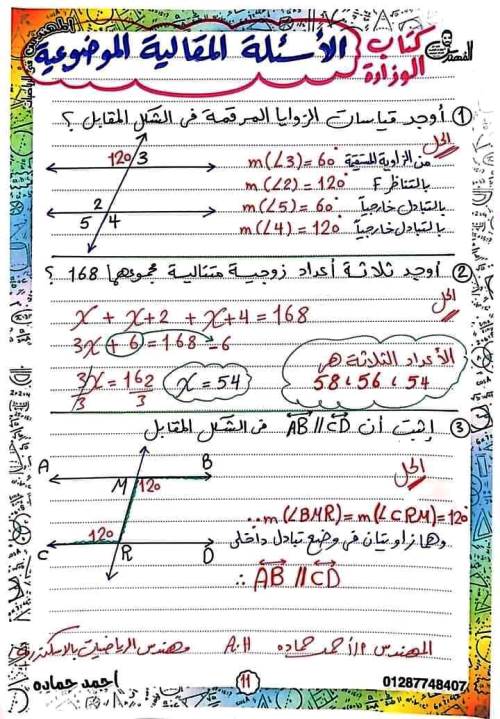 كتاب الوزارة
الأسئلة المقالية الموضوعية
المهندس
① أوجد قياسات الزوايا المرقمة فى الشكل المقابل ؟
الحل
120° 3
2
5 4
m(∠3) = 60° من الزاوية المستقيمة
m(∠2) = 120° بالتناظر F
m(∠5) = 60° بالتبادل خارجياً
m(∠4) = 120° بالتبادل خارجياً
② أوجد ثلاثة أعداد زوجية متتالية مجموعهما 168 ؟
الحل
x + x+2 + x+4 = 168
3x + 6 = 168 - 6
3x/3 = 162/3
x = 54
الأعداد الثلاثة هى
54 ، 56 ، 58
③ إثبت أن AB // CD فى الشكل المقابل
الحل
A B
M 120°
120°
C R D
∴ m(∠BMR) = m(∠CRM) = 120°
وهما زاويتان فى وضع تبادل داخلى
∴ AB // CD
المهندس م/ أحمد حماده A.H مهندس الرياضيات بالاسكندرية
احمد حماده
11
01287748407